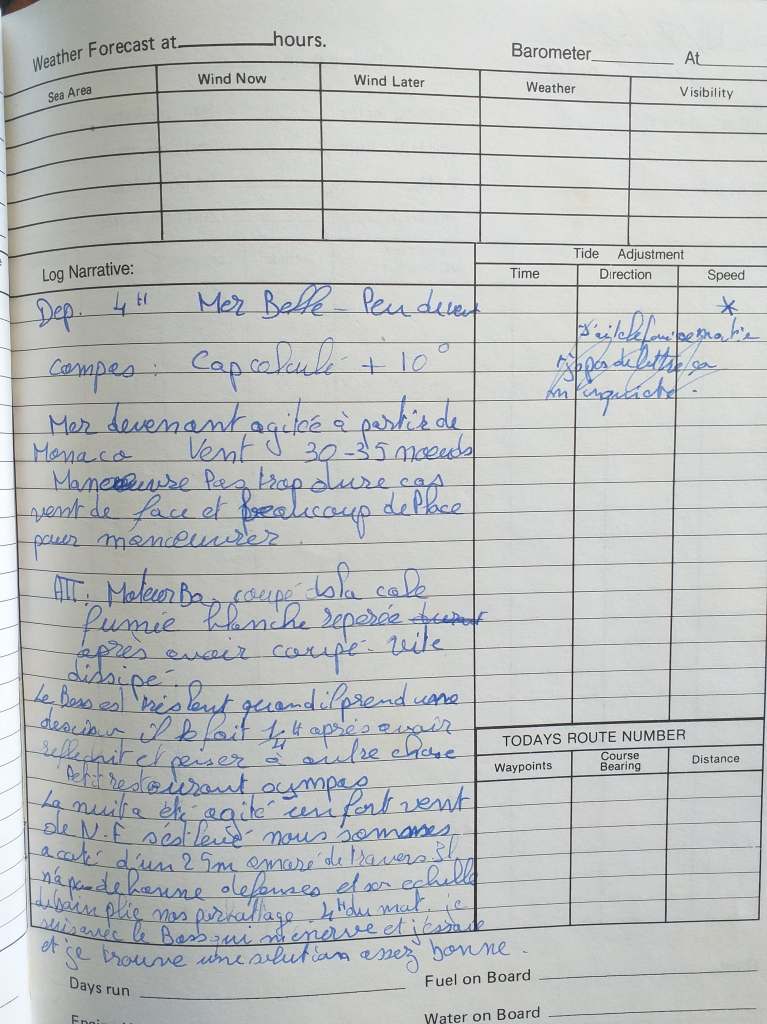 Weather Forecast at hours.
Barometer At
Sea Area Wind Now Wind Later Weather Visibility
Log Narrative:
Tide Adjustment
Time Direction Speed
Dep. 4H Mer Belle - Peu de vent
*
compas : Cap calculé + 10°
m'inquiète.
Mer devenant agitée à partir de
Monaco Vent 30-35 noeuds
Manoeuvre Pas trop dure cas
vent de face et beaucoup de Place
pour manoeuvrer.
ATT: Moteur Ba. coupé ds la cale
fumée blanche reperée
après avoir coupé. vite
dissipé.
Le Boss est très lent quand il prend une
il le fait 1/4H après avoir
reflechit et penser à autre chose
Petit restaurant sympas
La nuit a été agité un fort vent
de N.E s'est levé nous sommes
a coté d'un 25m amaré de travers Il
n'a pas de bonne defenses et son echelle
de bain plie nos 4H du mat. je
suis avec le Boss qui m'enerve et j'essaie
et je trouve une solution assez bonne.
TODAYS ROUTE NUMBER
Waypoints Course Bearing Distance
Days run Fuel on Board
Water on Board